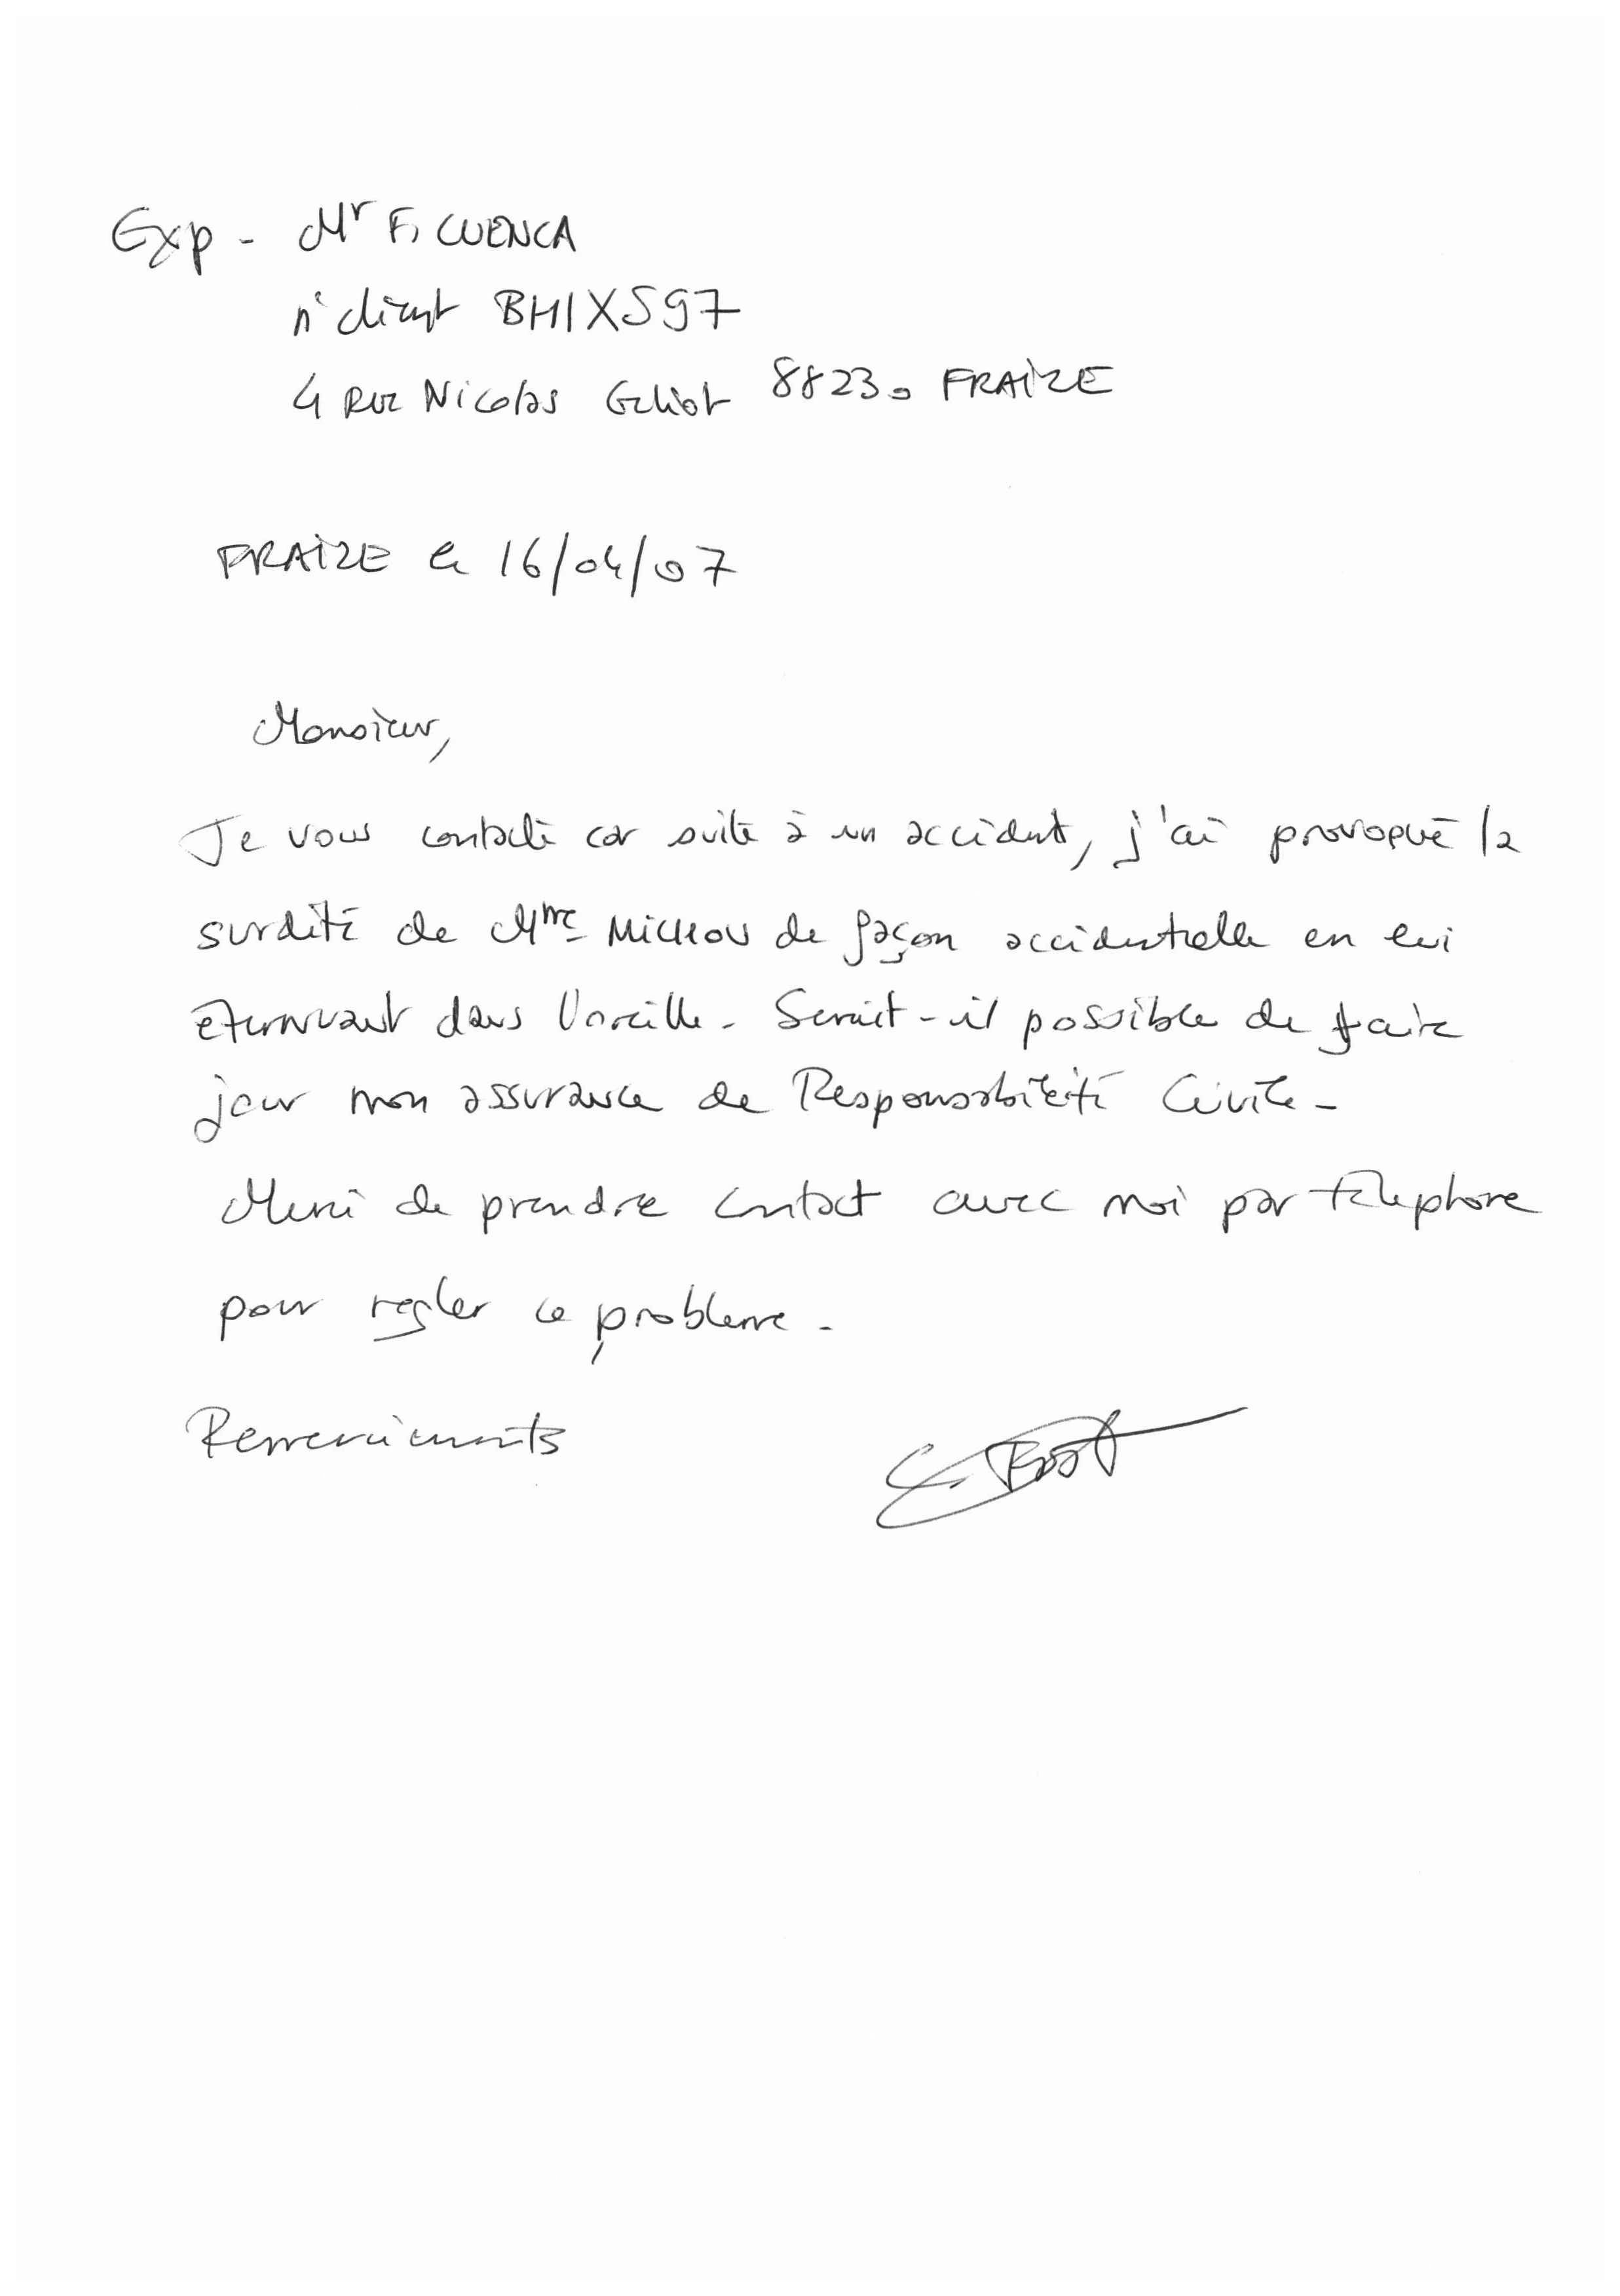 Exp - Mr F. CUENCA
n° client BHIX597
4 Rue Nicolas Géliot 88230 FRAIZE
FRAIZE le 16/04/07
Monsieur,
Je vous contacte car suite à un accident, j'ai provoqué la
surdité de Mme Micheou de façon accidentielle en lui
éternuant dans l'oreille - Serait-il possible de faire
jouer mon assurance de Responsabilité Civile -
Merci de prendre contact avec moi par téléphone
pour regler ce probleme -
Remerciements